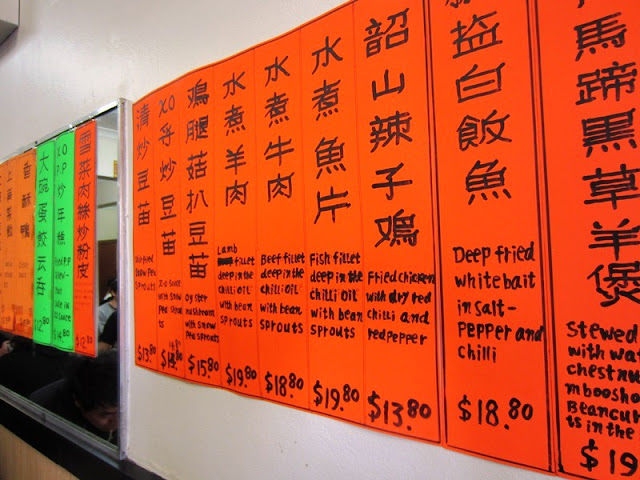 清炒豆苗
Stir-fried
Snow Pea
Sprouts
$13.80
XO手炒豆苗
X.O Sauce
with Snow
Pea Sprouts
鴻腿菇扒豆苗
Oyster
mushroom
with Snow
Pea Sprouts
$15.80
水煮羊肉
Lamb
fillet
deep in the
chilli oil
with bean
sprouts
$19.80
水煮牛肉
Beef fillet
deep in the
chilli oil
with bean
sprouts
$18.80
水煮魚片
Fish fillet
deep in the
chilli oil
with bean
sprouts
$19.80
韶山辣子鳮
Fried chicken
with dry red
chilli and
red pepper
$13.80
盐白飯魚
Deep fried
white bait
in salt-
pepper and
chilli
$18.80
馬蹄黑草羊煲
Stewed
with wa
chestnu
mboosho
Beancur
ts in the
$19
大碗蛋餃云吞
$12.80
XO PP炒年糕
$14.80
雪菜肉絲炒粉皮